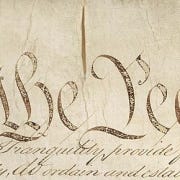 We the Peo
Tranquility, provide f
ordain and esta